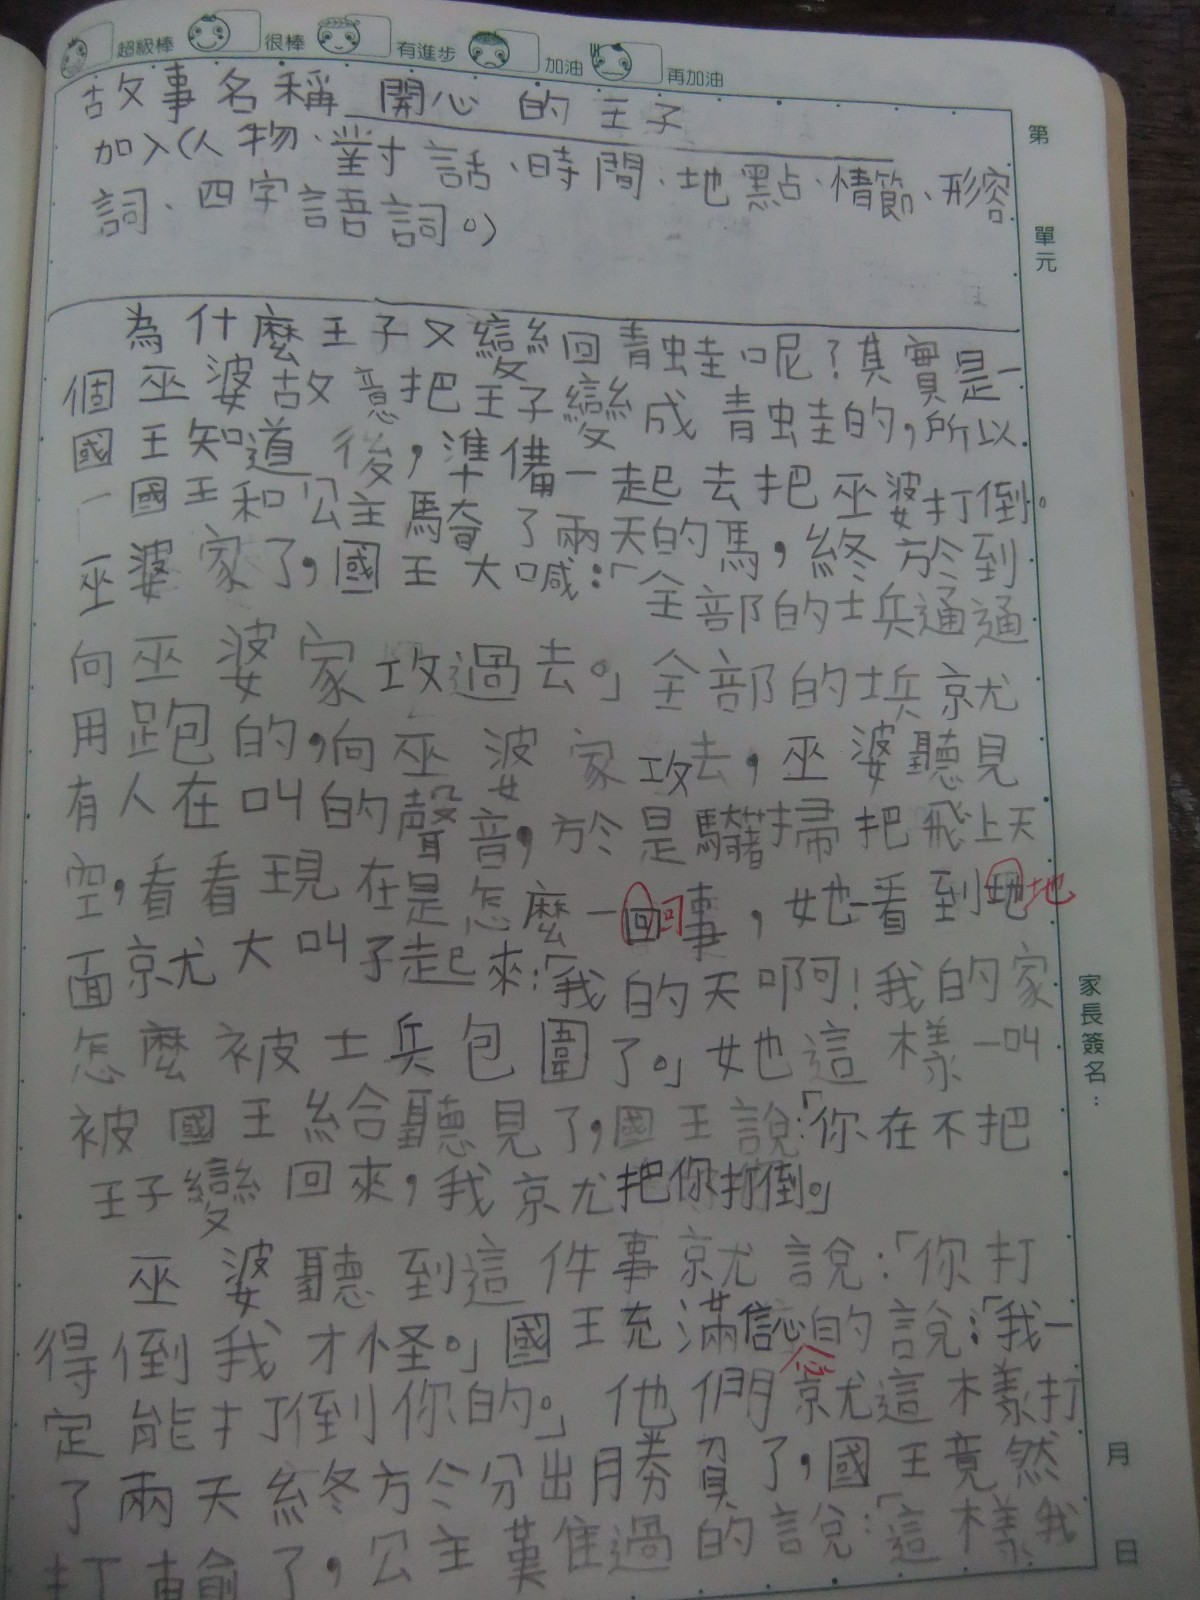 超級棒 很棒 有進步 加油 再加油
故事名稱 開心的王子
加入(人物、對話、時間、地點、情節、形容
詞、四字語詞。)
第 單元
為什麼王子又變回青蛙呢?其實是一
個巫婆故意把王子變成青蛙的,所以
國王知道後,準備一起去把巫婆打倒。
一國王和公主騎了兩天的馬,終於到
巫婆家了,國王大喊:「全部的士兵通通
向巫婆家攻過去。」全部的士兵就
用跑的,向巫婆家攻去,巫婆聽見
有人在叫的聲音,於是騎著掃把飛上天
空,看看現在是怎麼一回回事,她一看到地地
面就大叫了起來:「我的天啊!我的家
怎麼被士兵包圍了。」她這樣一叫
被國王給聽見了,國王說:「你在不把
王子變回來,我就把你打倒。」
巫婆聽到這件事就說:「你打
得倒我才怪。」國王充滿信心的說:「我一
念
定能打倒你的。」他們就這樣打
了兩天終於分出勝負了,國王竟然
打輸了,公主難過的說:「這樣我
家長簽名:
月 日